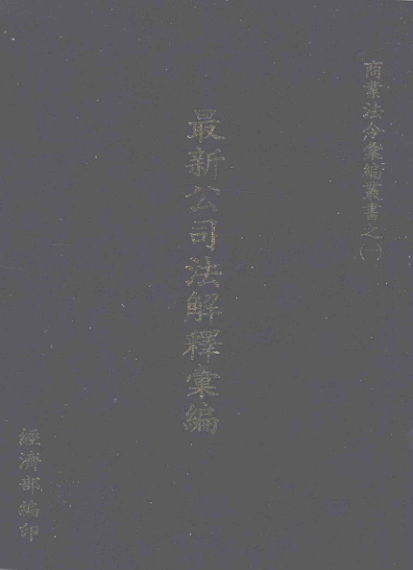 商業法令彙編叢書之(一)
最新公司法解釋彙編
經濟部編印